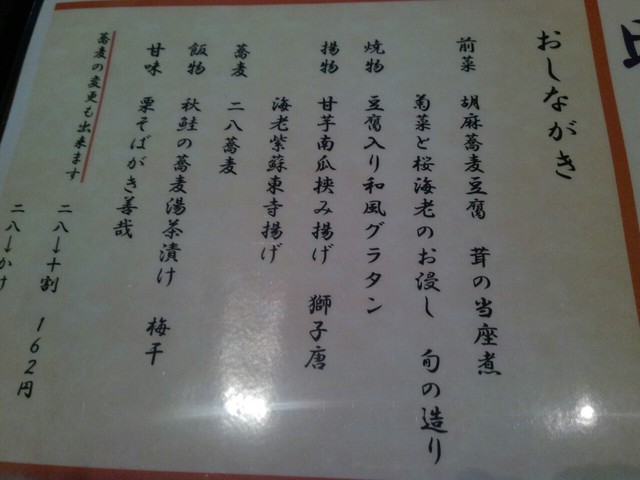 おしながき
前菜 胡麻蕎麦豆腐 茸の当座煮
菊菜と桜海老のお浸し 旬の造り
焼物 豆腐入り和風グラタン
揚物 甘芋南瓜挟み揚げ 獅子唐
海老紫蘇東寺揚げ
蕎麦 二八蕎麦
飯物 秋鮭の蕎麦湯茶漬け 梅干
甘味 栗そばがき善哉
蕎麦の変更も出来ます
二八→十割 162円
二八→かけ